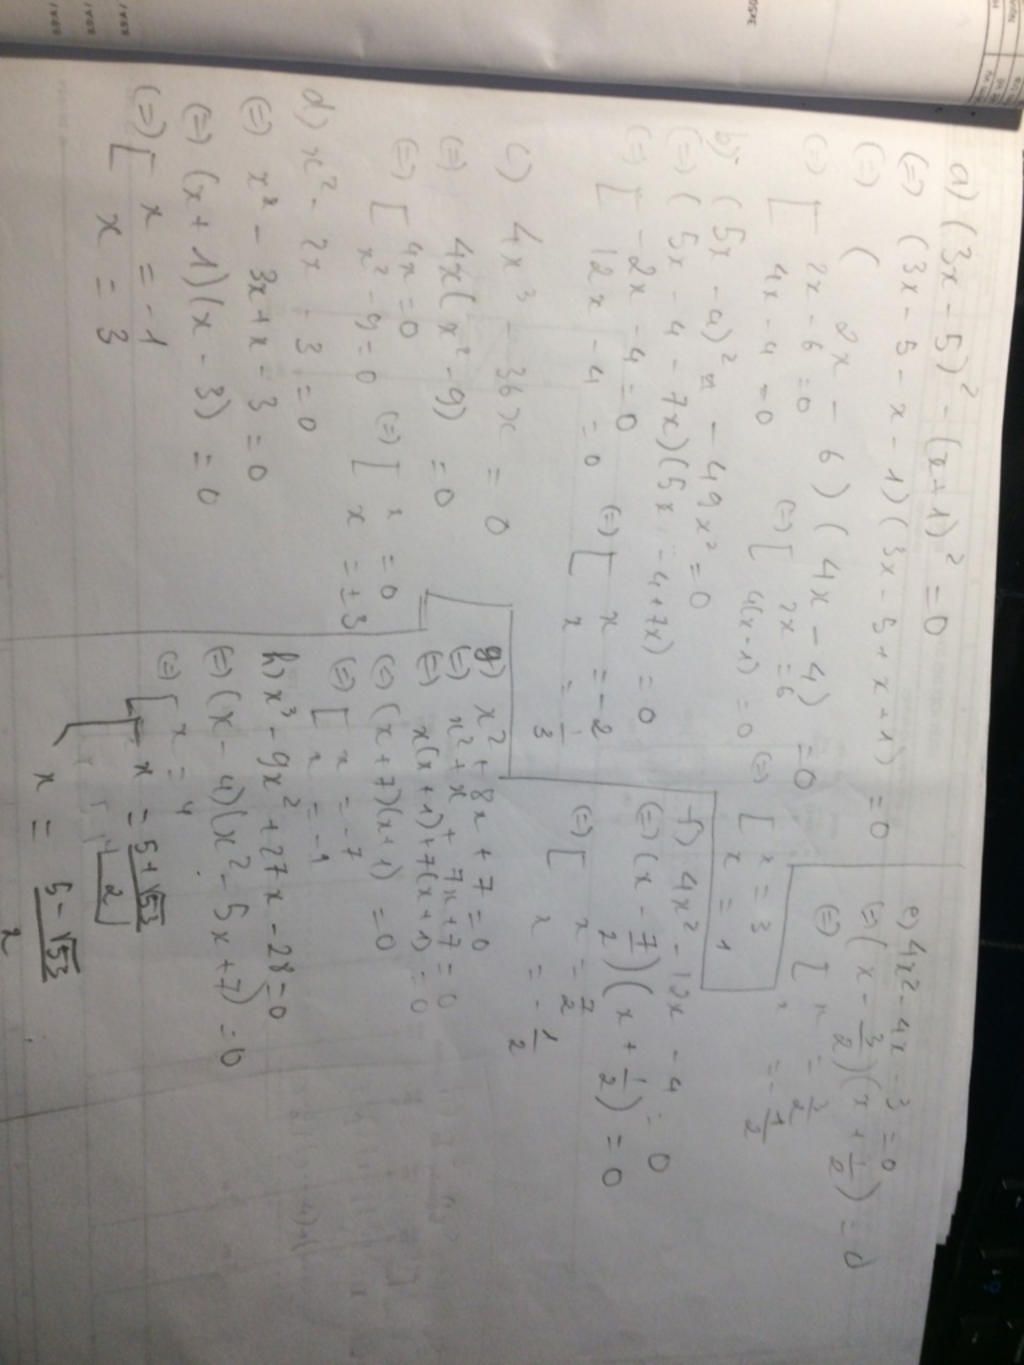 a) (3x - 5)² - (x+1)² = 0
(=) (3x - 5 - x - 1)(3x - 5 + x + 1) = 0
(=) (2x - 6)(4x - 4) = 0
(=) [ 2x - 6 = 0 (=) [ 2x = 6 (=) [ x = 3
4x - 4 = 0 4(x - 1) = 0 x = 1
b) (5x - 4)² - 49x² = 0
(=) (5x - 4 - 7x)(5x - 4 + 7x) = 0
(=) [ -2x - 4 = 0 (=) [ x = -2
12x - 4 = 0 x = 1/3
c) 4x³ - 36x = 0
(=) 4x(x² - 9) = 0
(=) [ 4x = 0 (=) [ x = 0
x² - 9 = 0 x = ±3
d) x² - 2x - 3 = 0
(=) x² - 3x + x - 3 = 0
(=) (x + 1)(x - 3) = 0
(=) [ x = -1
x = 3
e) 4x² - 4x - 3 = 0
(=) (x - 3/2)(x + 1/2) = 0
(=) [ x = 3/2
x = -1/2
f) 4x² - 12x - 4 = 0
(=) (x - 7/2)(x + 1/2) = 0
(=) [ x = 7/2
x = -1/2
g) x² + 8x + 7 = 0
(=) x² + x + 7x + 7 = 0
(=) x(x + 1) + 7(x + 1) = 0
(=) (x + 7)(x + 1) = 0
(=) [ x = -7
x = -1
h) x³ - 9x² + 27x - 28 = 0
(=) (x - 4)(x² - 5x + 7) = 0
(=) [ x = 4
x = 5+√53 / 2
x = 5-√53 / 2